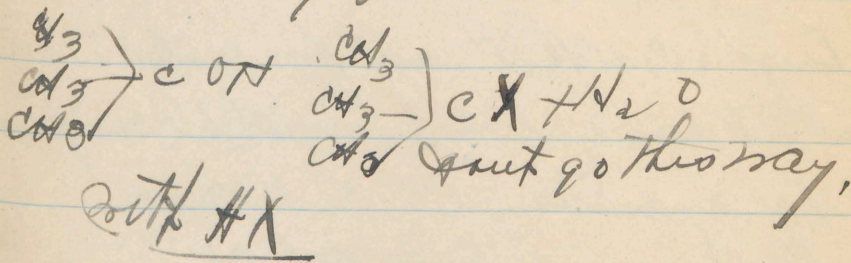 CH3 CH3
CH3 C OH CH3 C X + H2O
CH3 CH3 dont go this way.
with HX